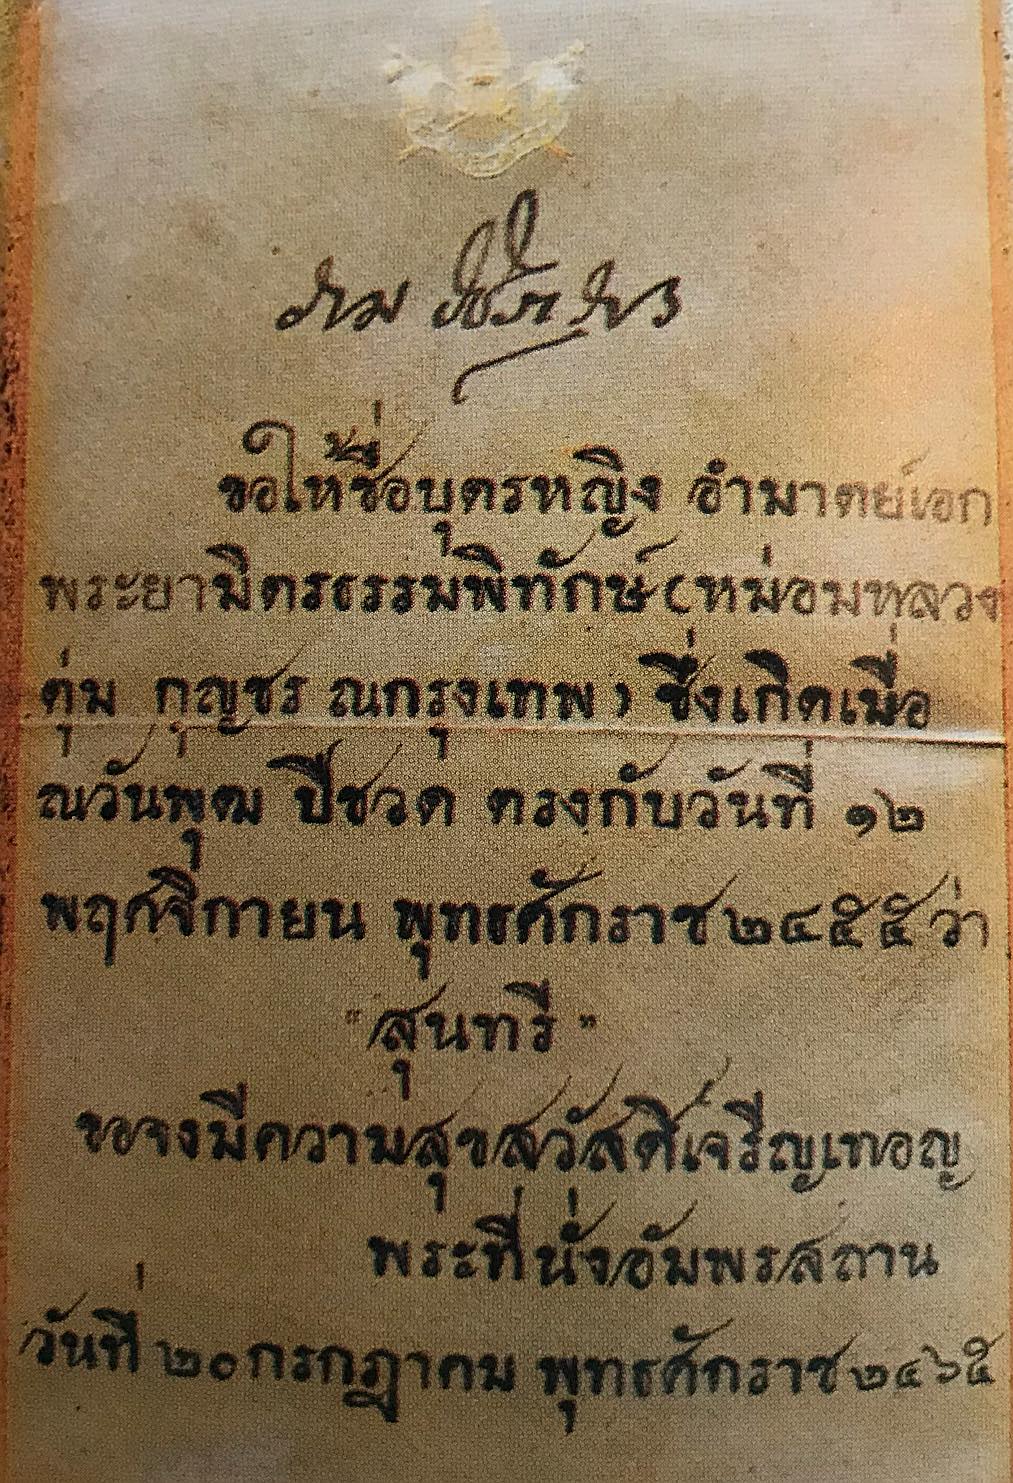 ราม
ขอให้ชื่อบุตรหญิง อำมาตย์เอก
พระยามิตรธรรมพิทักษ์ (หม่อมหลวง
ตุ่ม กุญชร ณกรุงเทพ) ซึ่งเกิดเมื่อ
ณวันพุฒ ปีชวด ตรงกับวันที่ ๑๒
พฤศจิกายน พุทธศักราช ๒๔๕๕ ว่า
"สุนทรี"
ขอจงมีความสุขสวัสดิ์เจรีญเทอญ
พระที่นั่งอัมพรสถาน
วันที่ ๒๐ กรกฎาคม พุทธศักราช ๒๔๖๕